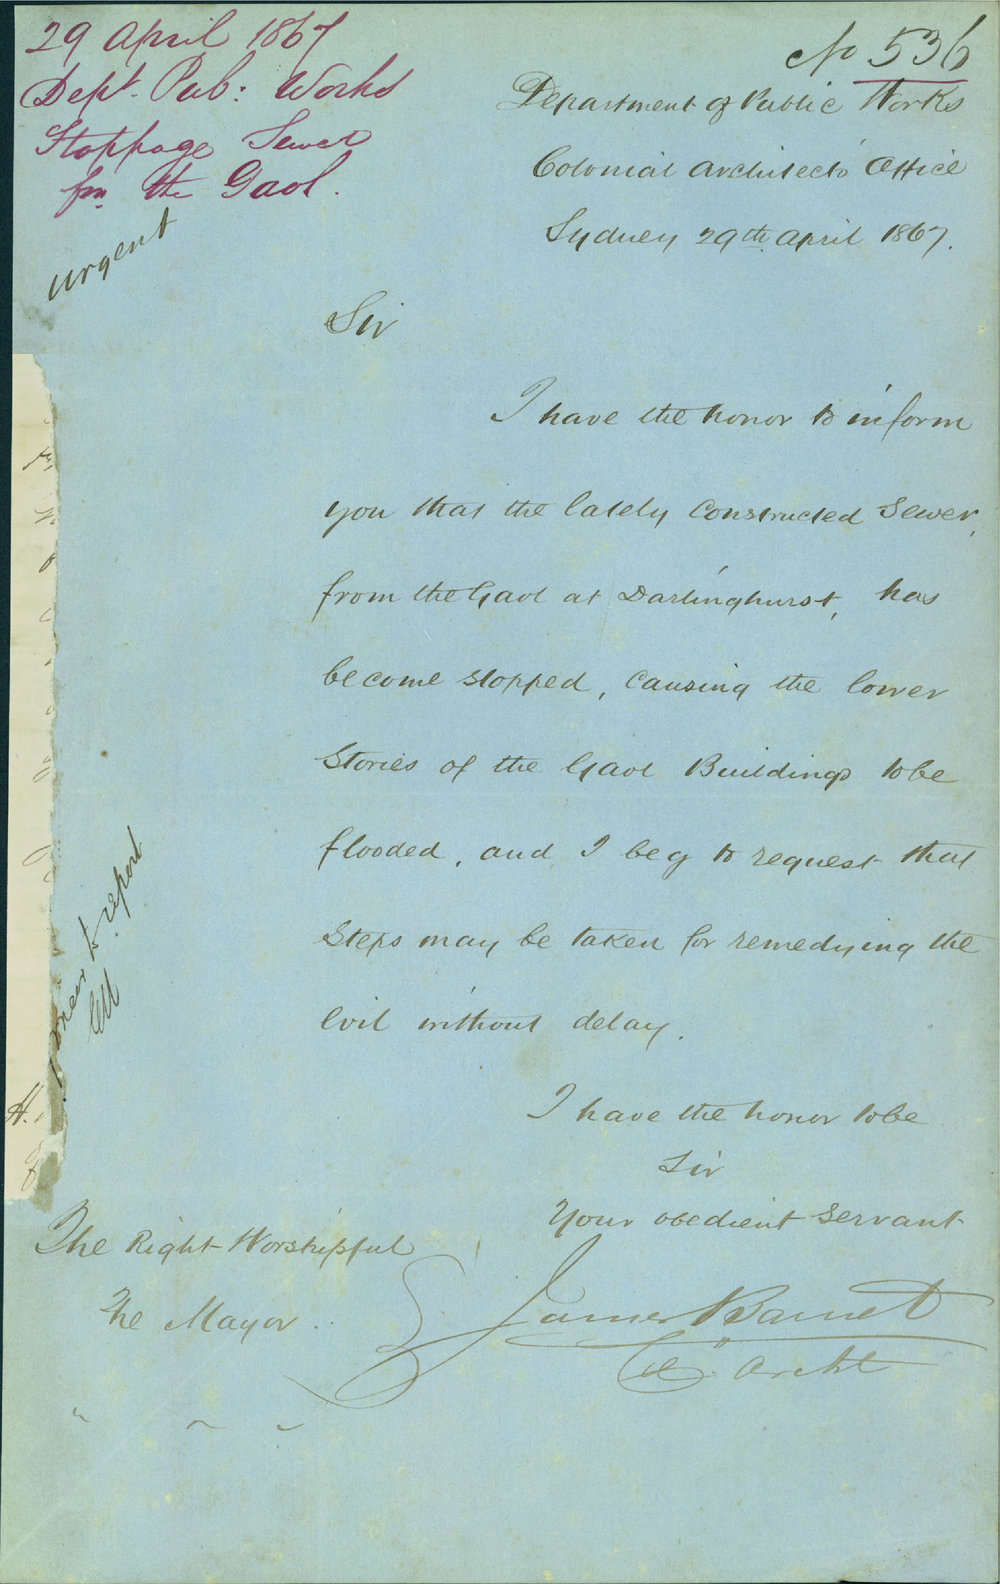 29 April 1867
Dept. Pub: Works
Stoppage Sewer
fm the Gaol.
urgent
No 536
Department of Public Works
Colonial Architects' Office
Sydney 29th April 1867.
Sir
I have the honor to inform
you that the lately Constructed Sewer,
from the Gaol at Darlinghurst, has
become stopped, causing the lower
Stories of the Gaol Buildings to be
flooded, and I beg to request that
Steps may be taken for remedying the
evil without delay.
I have the honor to be
Sir
Your obedient Servant
James Barnet
Col. Archt
The Right Worshipful
The Mayor
to report